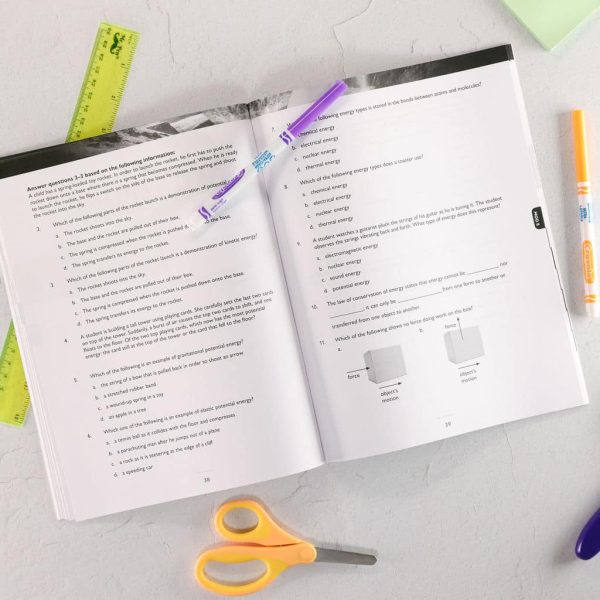 Answer questions 2–3 based on the following information:
A child has a spring-loaded toy rocket. In order to launch the rocket, he first has to push the
rocket down onto a base where there is a spring that becomes compressed. When he is ready
to launch the rocket, he flips a switch on the side of the base to release the spring and shoot
the rocket into the sky.
2. Which of the following parts of the rocket launch is a demonstration of potential
a. The rocket shoots into the sky.
b. The base and the rocket are pulled out of their
c. The spring is compressed when the rocket is pushed the base.
d. The spring transfers its energy to the rocket.
3. Which of the following parts of the rocket launch is a demonstration of kinetic energy?
a. The rocket shoots into the sky.
b. The base and the rocket are pulled out of their box.
c. The spring is compressed when the rocket is pushed down onto the base.
d. The spring transfers its energy to the rocket.
4. A student is building a tall tower using playing cards. She carefully sets the last two cards
on top of the tower. Suddenly, a burst of air causes the top two cards to shift, and one
floats to the floor. Of the two top playing cards, which now has the most potential
energy: the card still at the top of the tower or the card that fell to the floor?
5. Which of the following is an example of gravitational potential energy?
a. the string of a bow that is pulled back in order to shoot an arrow
b. a stretched rubber band
c. a wound-up spring in a toy
d. an apple in a tree
6. Which one of the following is an example of elastic potential energy?
a. a tennis ball as it collides with the floor and compresses
b. a parachuting man after he jumps out of a plane
c. a rock as it is teetering at the edge of a cliff
d. a speeding car
38
7. following energy types is stored in the bonds between atoms and molecules?
chemical energy
b. electrical energy
c. nuclear energy
d. thermal energy
8. Which of the following energy types does a toaster use?
a. chemical energy
b. electrical energy
c. nuclear energy
d. thermal energy
9. A student watches a guitarist pluck the strings of his guitar as he is tuning it. The student
observes the strings vibrating back and forth. What type of energy does this represent?
a. electromagnetic energy
b. nuclear energy
c. sound energy
d. potential energy
10. The law of conservation of energy states that energy cannot be ____ nor
____, it can only be ____ from one form to another or
transferred from one object to another.
11. Which of the following shows no force doing work on the box?
a.
b.
force
force
object's
motion
object's
motion
39
Crayola